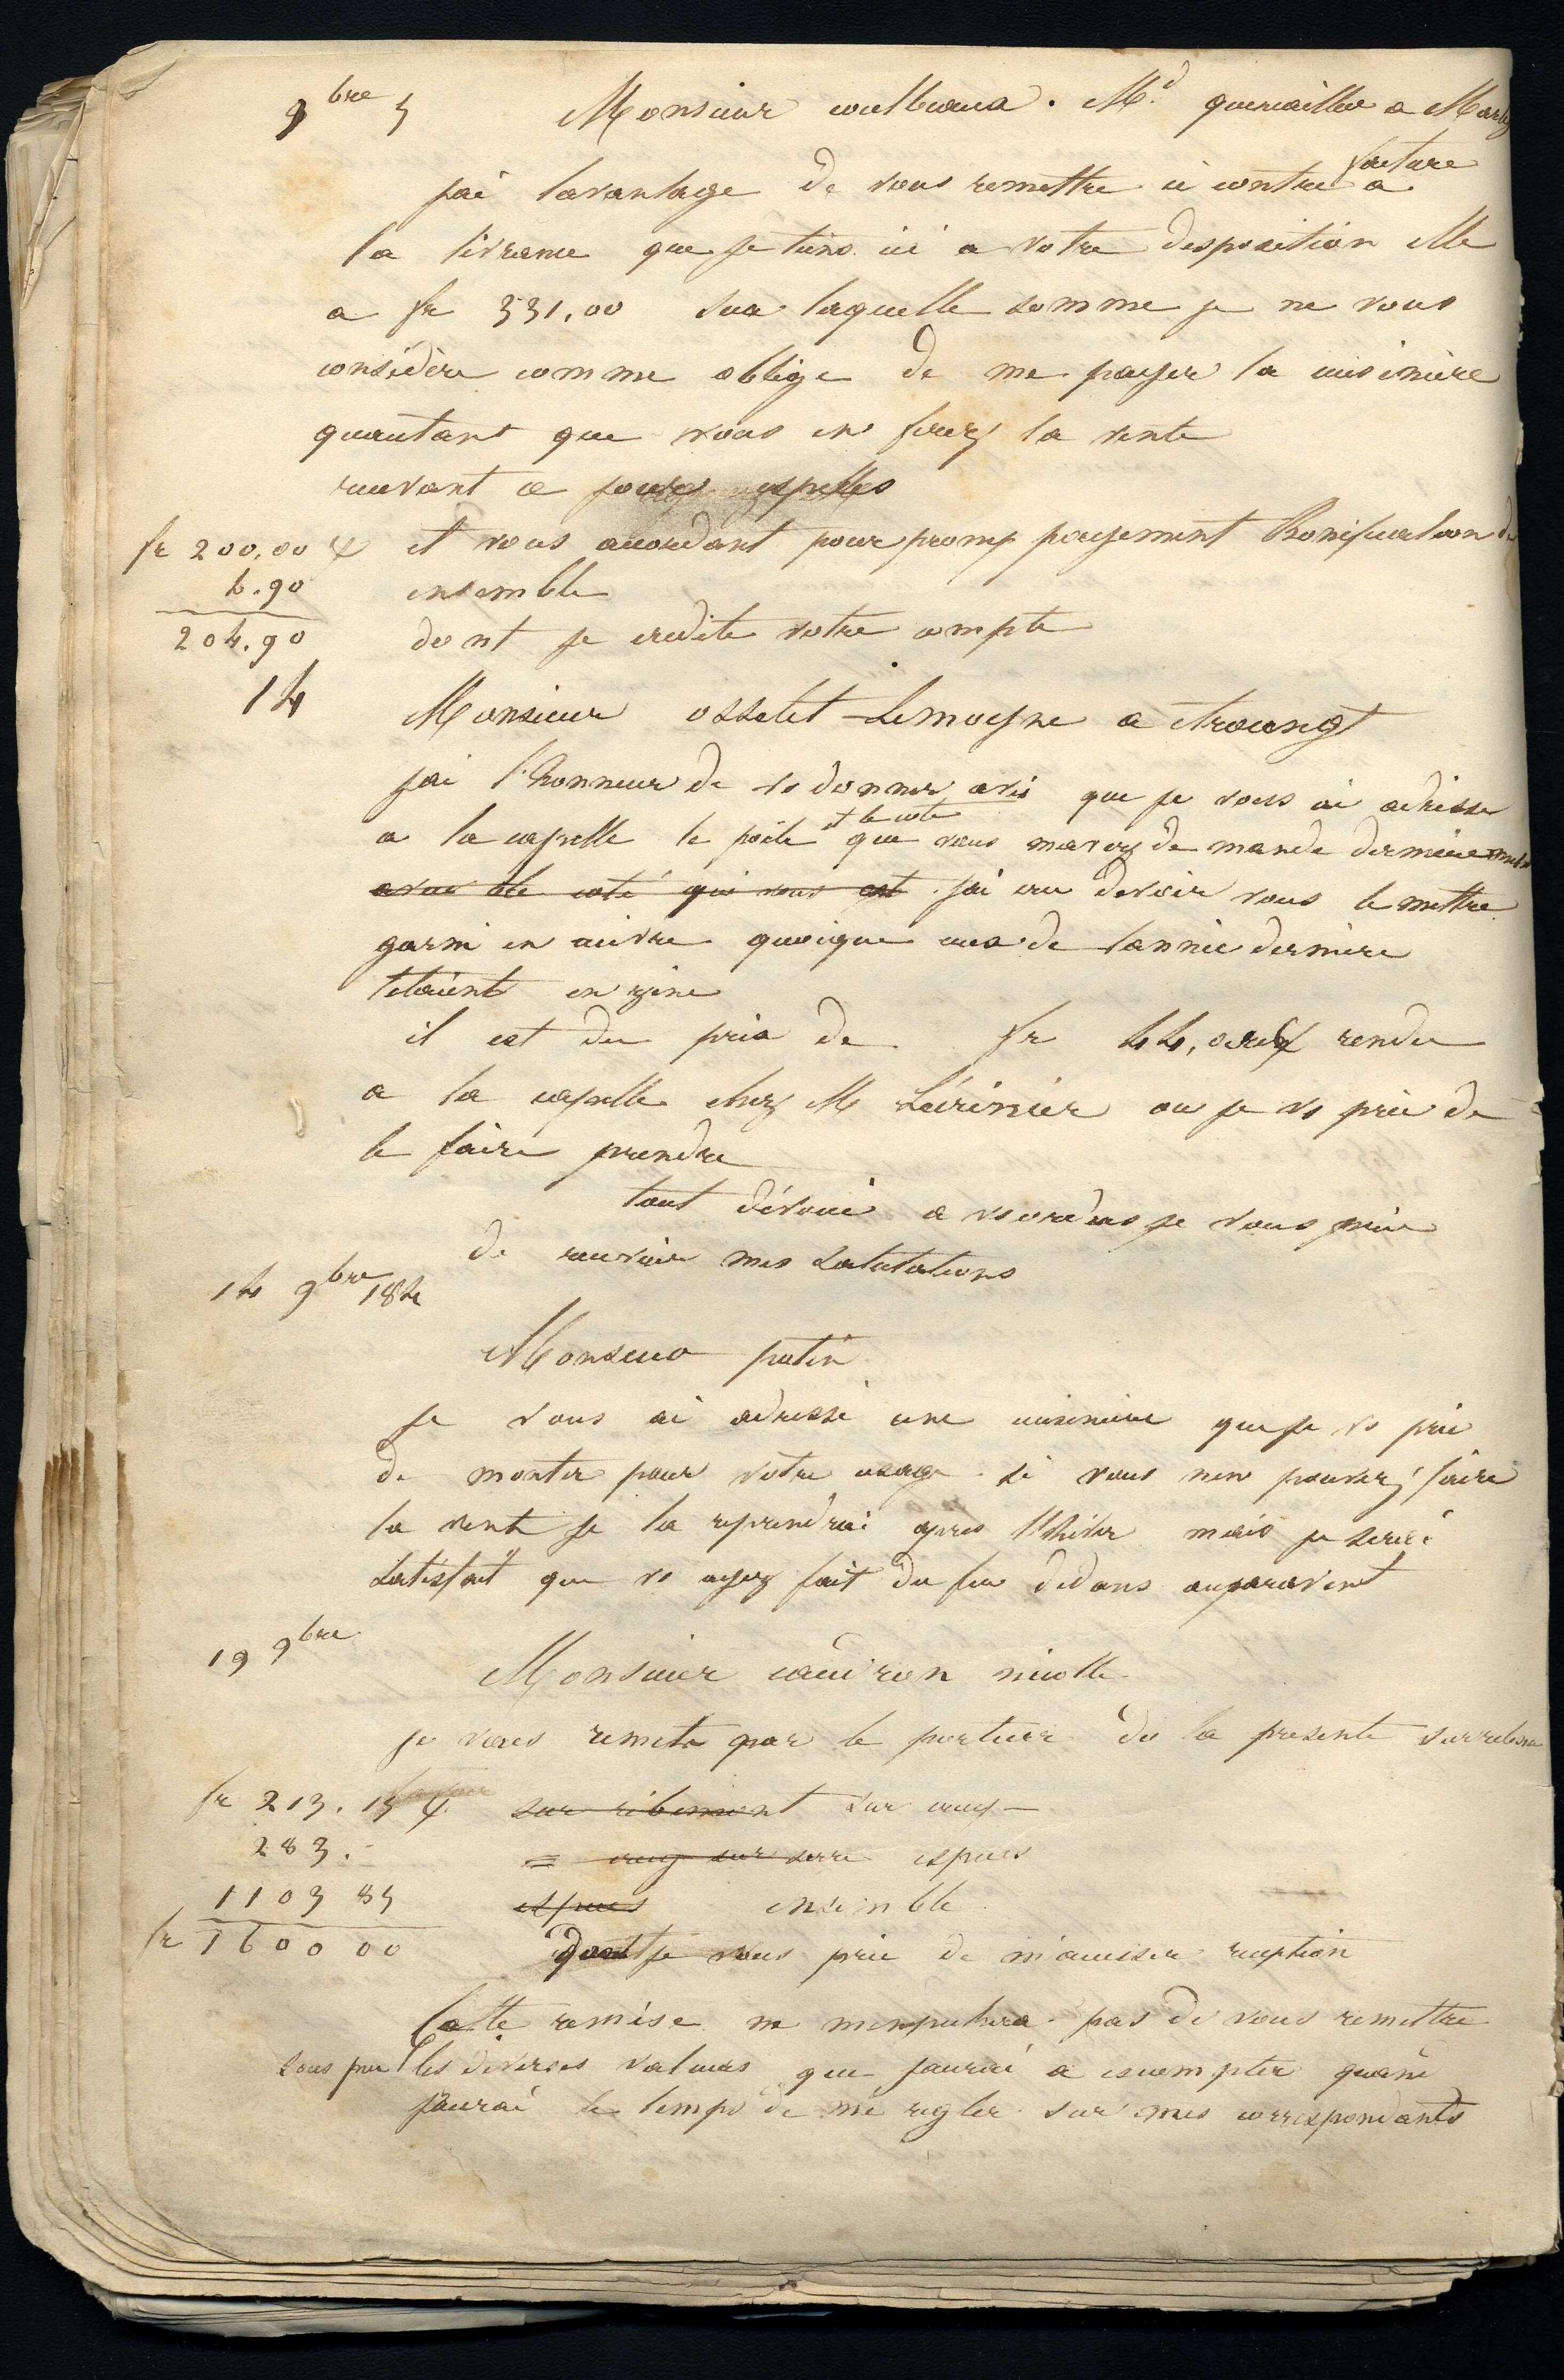 9bre 5 Monsieur Md quincailler a Marle
jai lavantage de vous remettre ci contre facture a
la livrance que je tiens ici a votre disposition elle
a fr 331,00 sur laquelle somme je ne vous
considère comme oblige de me payer la cuisinière
quautant que vous en ferez la vente
recevant ce jour espèces
fr 200,00 et vous acordant pour promp payement Bonification de
4.90 ensemble
204.90 dont je credite votre compte
14 Monsieur osselet-Lemoyne a etroeungt
jai l'honneur de vs donner avis que je vous ai adressé
a la capelle le poële et le coté que vous mavez demande dernièrement
avec le coté qui vous est jai cru devoir vous le mettre
garni en cuivre quoique ceux de lannée dernière
létaient en zinc
il est du prix de fr 44, rendu
a la capelle chez M ou je vs prie de
le faire prendre
tout dévoué a vs ordres je vous prie
de recevoir mes salutations
14 9bre 184
Monsieur patin
je vous ai adressé une cuisinière que je vs prie
de monter pour votre usage si vous nen pouvez faire
la vente je la reprendrai apres lhiver mais je serai
satisfait que vs ayez fait du feu dedans auparavent
19 9bre
Monsieur caudron nicolle
je vous remets par le porteur de la presente
fr 213.15 sur ribemont sur crecy
283.- = crecy sur serre espèces
1103 85 espèces ensemble
fr 1600 00 dont je vous prie de m'accuser reception
Cette remise ne mempechera pas de vous remettre
sous peu les diverses valeurs que jaurai a escompter quand
jaurai le temps de me regler sur mes correspondants